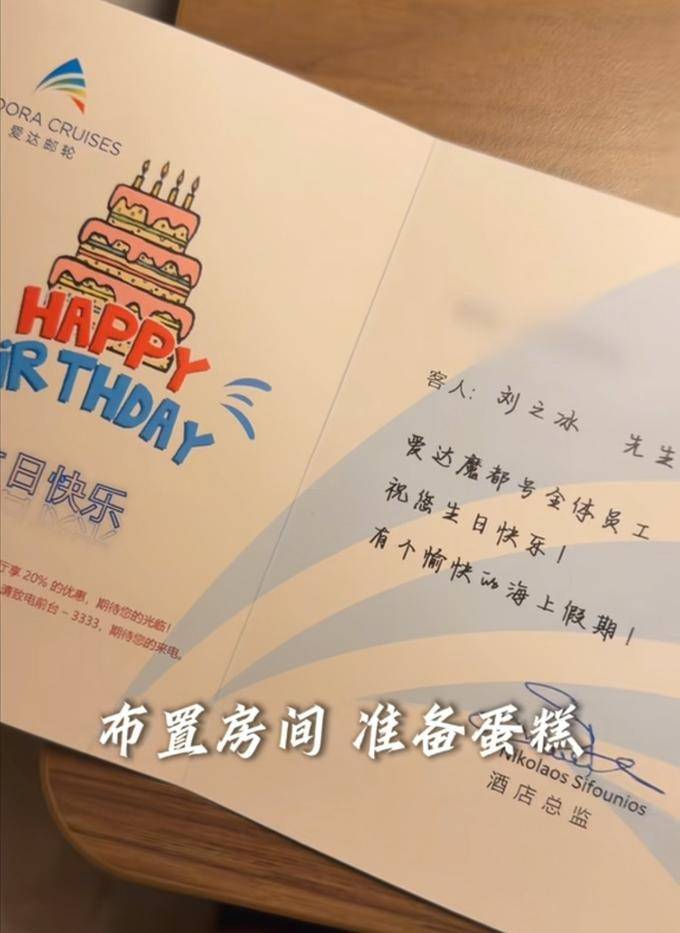 DORA CRUISES
爱达邮轮
HAPPY
BIRTHDAY
日快乐
享 20% 的优惠，期待您的光临！
请致电前台 – 3333，期待您的来电。
客人: 刘之冰 先生
爱达魔都号全体员工
祝您生日快乐！
有个愉快的海上假期！
Nikolaos Sifounios
酒店总监
布置房间 准备蛋糕